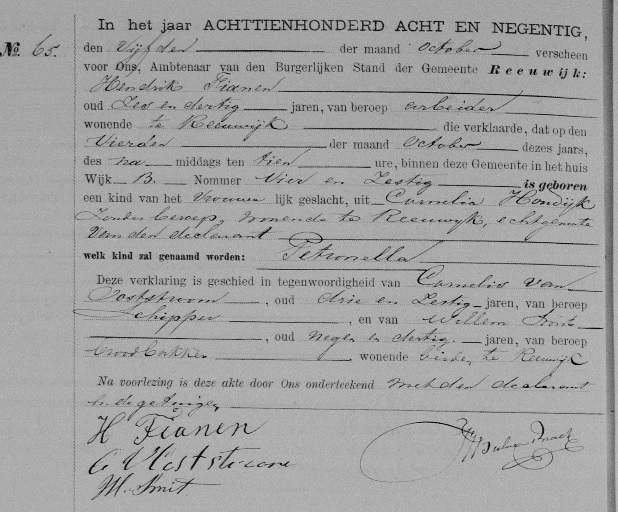 In het jaar ACHTTIENHONDERD ACHT EN NEGENTIG,
No. 65. den Vijfden der maand October verscheen
voor Ons, Ambtenaar van den Burgerlijken Stand der Gemeente Reeuwijk:
Hendrik Fianen
oud Zes en dertig jaren, van beroep arbeider
wonende te Reeuwijk die verklaarde, dat op den
Vierden der maand October dezes jaars,
des na middags ten tien ure, binnen deze Gemeente in het huis
Wijk B. Nommer Vier en Zestig is geboren
een kind van het Vrouwe lijk geslacht, uit Cornelia Hondijk
Zonder beroep, wonende te Reeuwyk, echtgenoote
van den declarant
welk kind zal genaamd worden: Petronella
Deze verklaring is geschied in tegenwoordigheid van Cornelis van
Ooststroom, oud drie en Zestig jaren, van beroep
Schipper, en van Willem Smit
, oud negen en dertig jaren, van beroep
broodbakker, wonende beiden te Reeuwijk
Na voorlezing is deze akte door Ons onderteekend met den declarant
en de getuigen
H Fianen
C V Oststroom
W. Smit